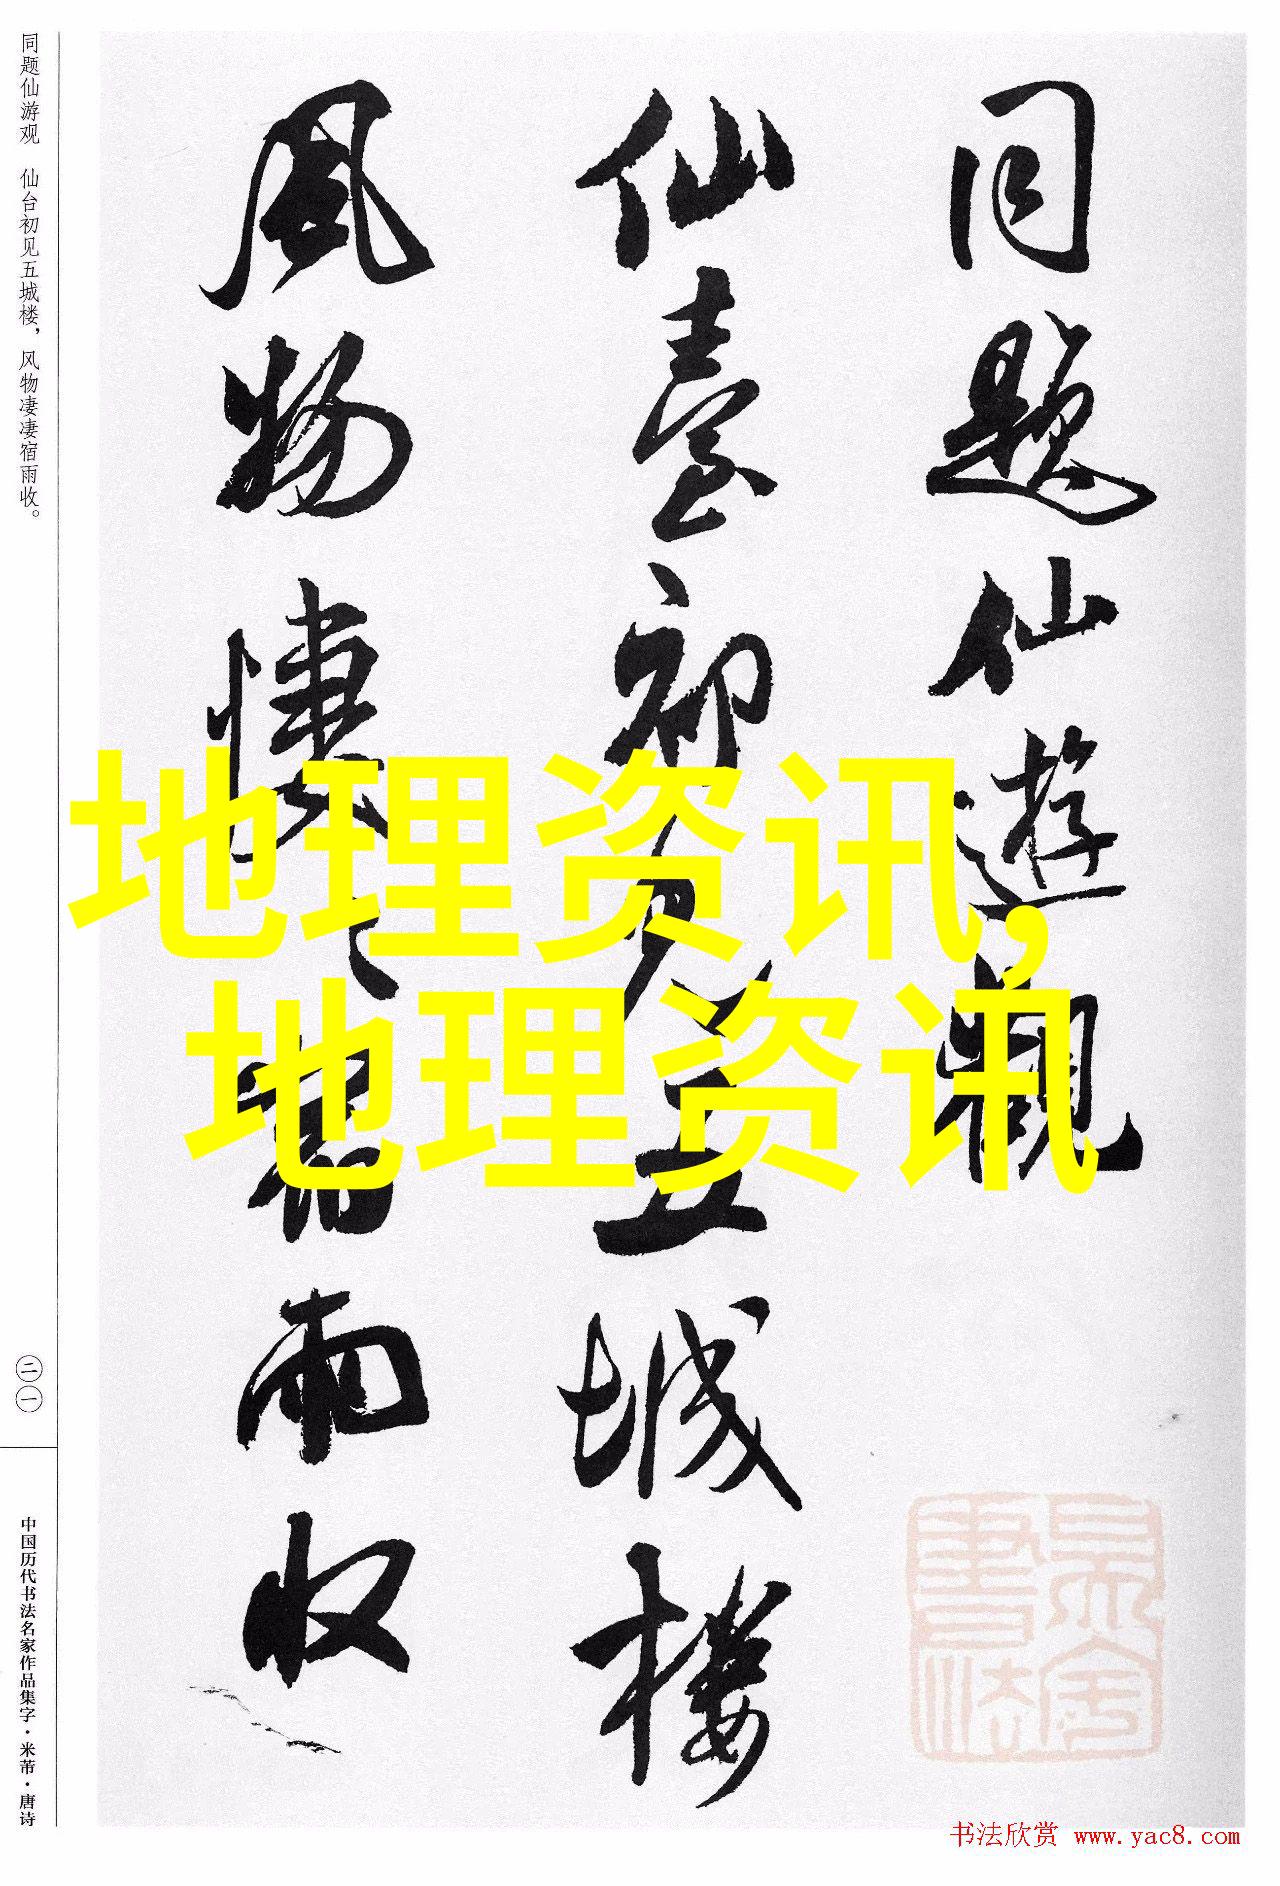 同題仙遊觀
仙臺初見五城樓
風物悽〻宿雨收
同题仙游观　仙台初见五城楼，风物凄凄宿雨收。
二一
中国历代书法名家作品集字·米芾·唐诗
地理资讯,
地理资讯
书法欣赏 www.yac8.com